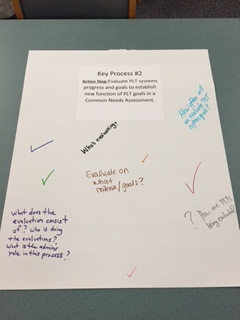 Key Process #2
Action Step: Evaluate PLT systems
progress and goals to establish
new function of PLT goals in a
Common Needs Assessment.
How often will
we evaluate PLT
Who's evaluating?
Evaluate on
what
criteria/goals?
what does the
evaluation consist
of? Who is doing
the evaluations?
What is the admins
role in this process?
? How are PLTs
being evaluated?